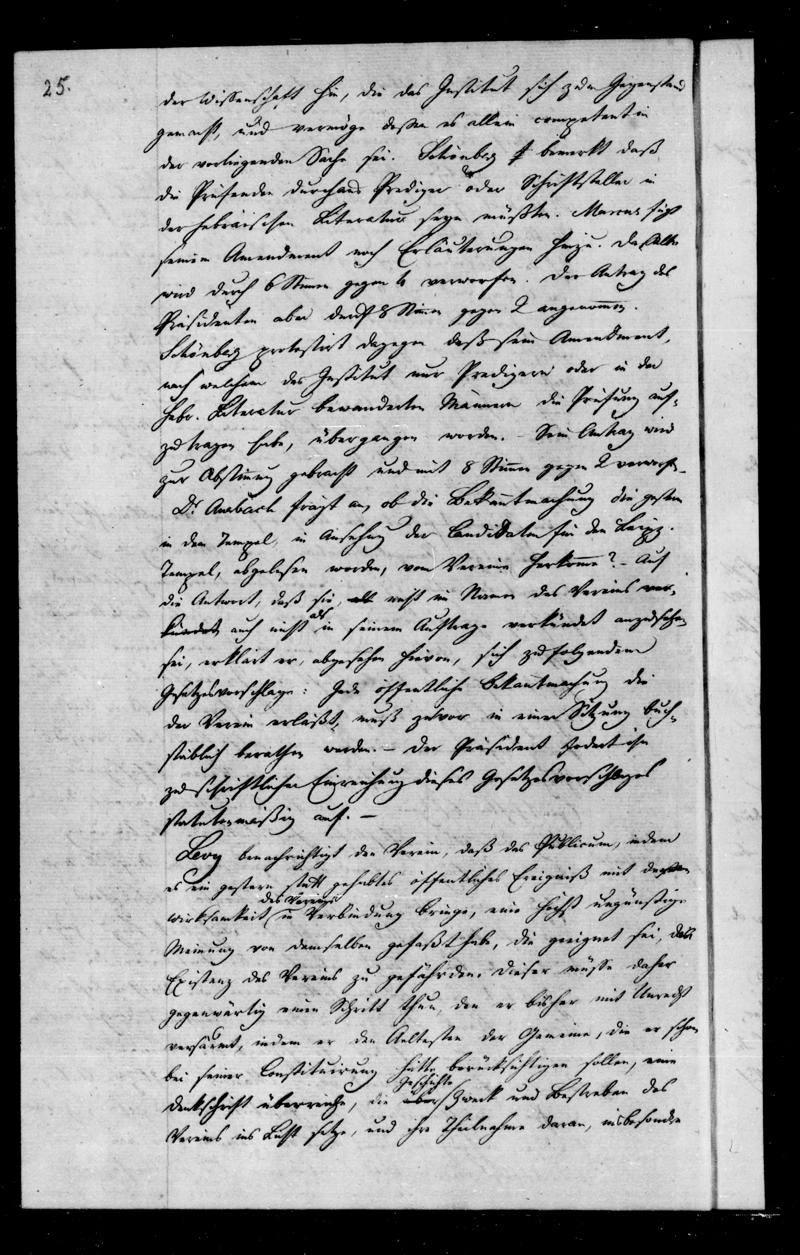 25.
der Wissenschaft hin, die das Institut sich zum Gegenstand
gemacht, und vermöge dessen es allein competent in
der vorliegenden Sache sei. Schönberg bemerkt daß
die Prüfenden durchaus Prediger oder Schriftsteller in
der hebräischen Literatur seyn müßten. Marcus fügt
seinem Amendment noch Erläuterungen hinzu. Dasselbe
wird durch 6 Stimen gegen 4 verworfen. Der Antrag des
Präsidenten aber durch 8 Stimen gegen 2 angenommen.
Schönberg protestirt dagegen daß sein Amendment,
nach welchem das Institut nur Predigern oder in der
hebr. Literatur bewanderten Männern die Prüfung auf-
zutragen habe, übergangen worden. – Sein Antrag wird
zur Abstimung gebracht und mit 8 Stimen gegen 2 verworfen
Dr Auerbach frägt an, ob die Bekantmachung die gestern
in dem Tempel, in Ansehung der Candidaten für den Leipz.
Tempel, abgelesen worden, vom Vereine herkome? – Auf
die Antwort, daß sie, nicht im Namen des Vereins ver-
kündet auch nicht als in seinem Auftrage verkündet anzusehen
sei, erklärt er, abgesehen hievon, sich zu folgendem
Gesetzesvorschlage: Jede öffentliche Bekantmachung die
der Verein erläßt, muß zuvor in einer Sitzung buch-
stäblich berathen werden. – Der Präsident fodert ihn
zu schriftlicher Einreichung dieses Gesetzesvorschlages
statutenmäßig auf. –
Levy benachrichtigt den Verein, daß das Publicum, indem
es ein gestern statt gehabtes öffentliches Ereigniß mit der
Wirksamkeit des Vereins in Verbindung bringe, eine höchst ungünstige
Meinung von demselben gefaßt habe, die geeignet sei, die
Existenz des Vereins zu gefährden. Dieser müsse daher
gegenwärtig einen Schritt thun, den er bisher mit Unrecht
versäumt, indem er den Aeltesten der Gemeine, die er schon
bei seiner Constituirung hätte berücksichtigen sollen, eine
Denkschrift überreiche, die Geschichte Zweck und Bestreben des
Vereins ins Licht setze, und ihre Theilnahme daran, insbesondere